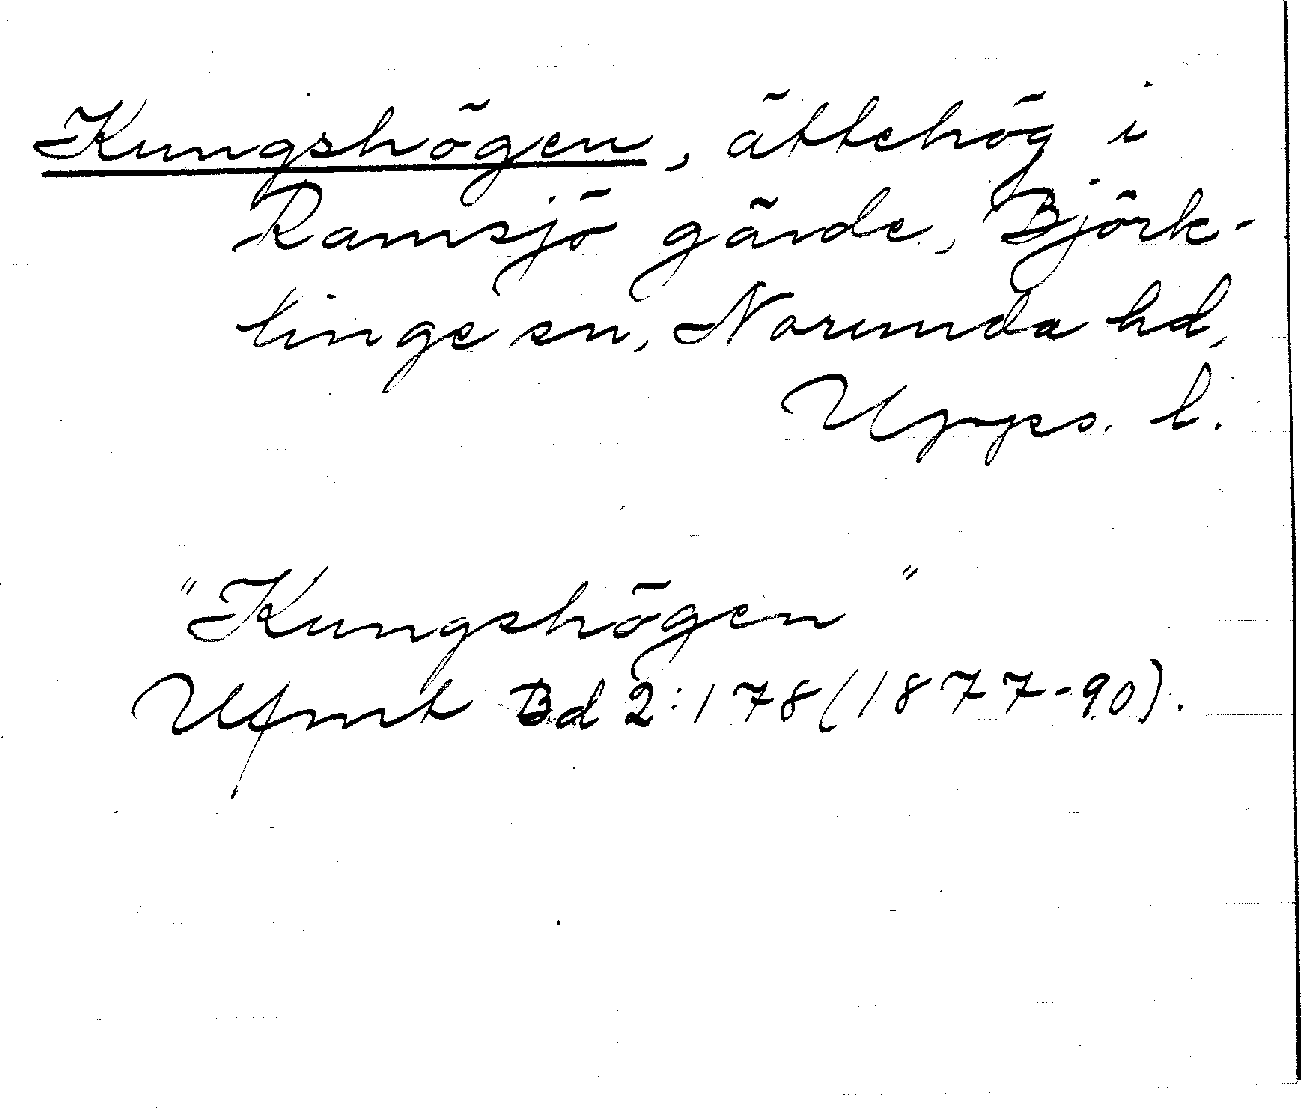 Kungshögen, ättehög i
Ramsjö gärde, Björk-
linge sn, Norunda hd,
Upps. l.
"Kungshögen"
Ufmt Bd 2:178 (1877-90).